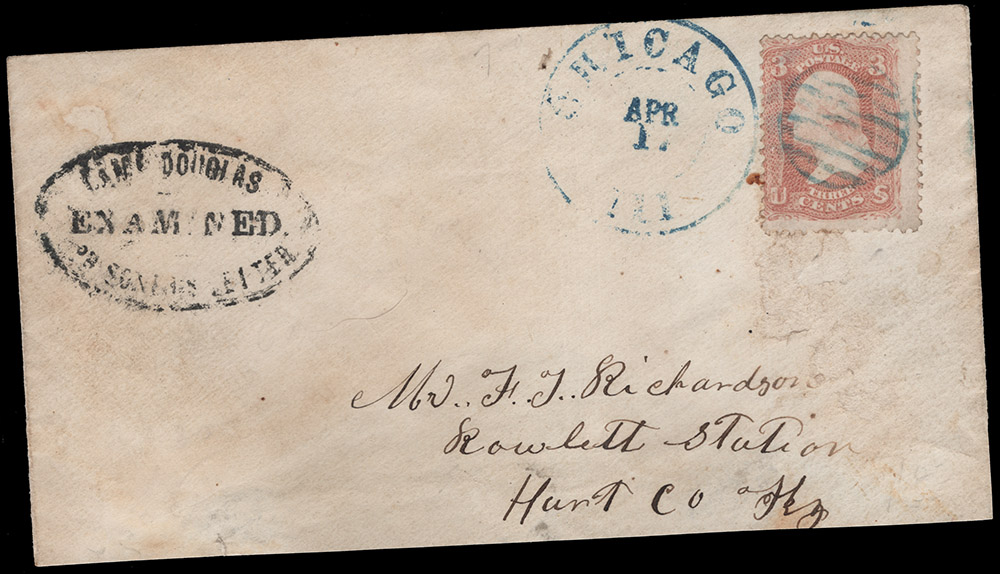 CAMP DOUGLAS
EXAMINED.
PRISONERS LETTER
CHICAGO
APR
17
ILL
U.S.
POSTAGE
3 3
THREE
U CENTS S
Mr. F. J. Richardson
Rowlett Station
Hart Co Ky